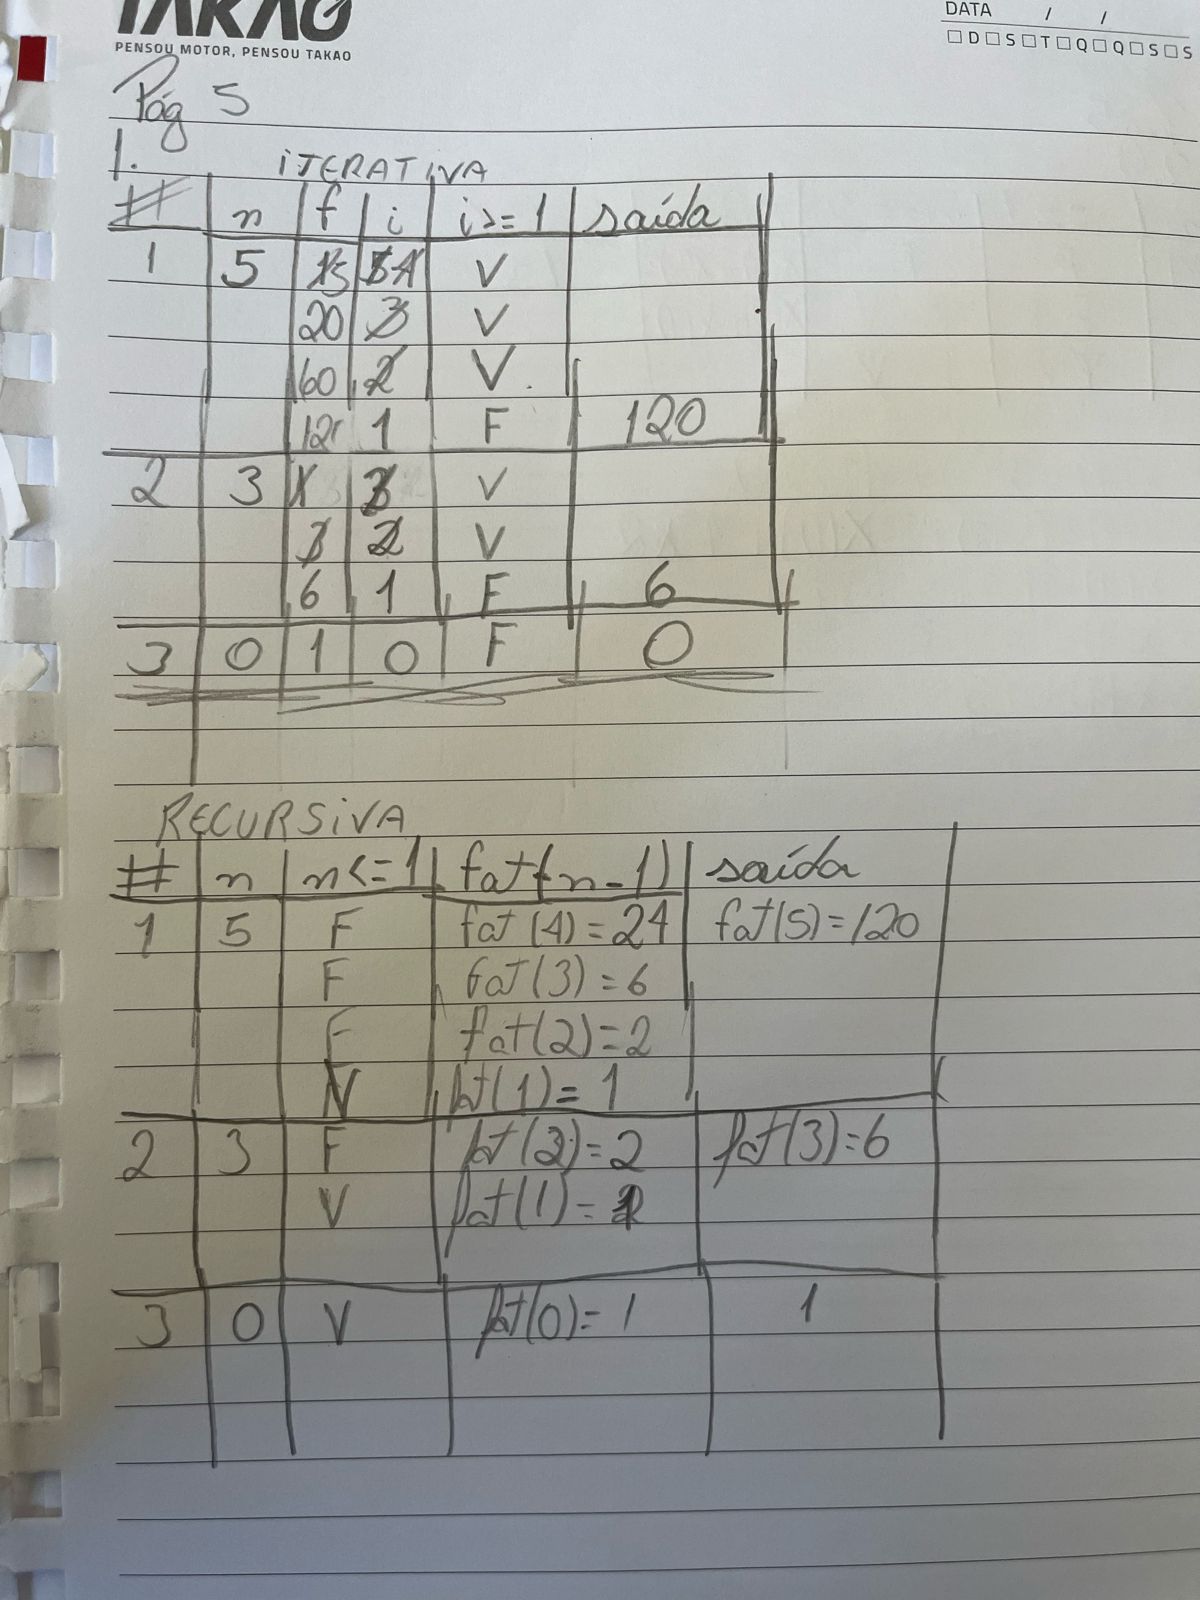 TAKAO
PENSOU MOTOR, PENSOU TAKAO
DATA / /
D S T Q Q S S
Pág 5
1. iTERATiVA
# n f i i>=1 saída
1 5 1 5 5 4 V
20 3 V
60 2 V
120 1 F 120
2 3 1 3 V
3 2 V
6 1 F 6
3 0 1 0 F 0
RECURSiVA
# n n<=1 fat(n-1) saída
1 5 F fat(4)=24 fat(5)=120
F fat(3)=6
F fat(2)=2
V fat(1)=1
2 3 F fat(2)=2 fat(3)=6
V fat(1)=1
3 0 V fat(0)=1 1